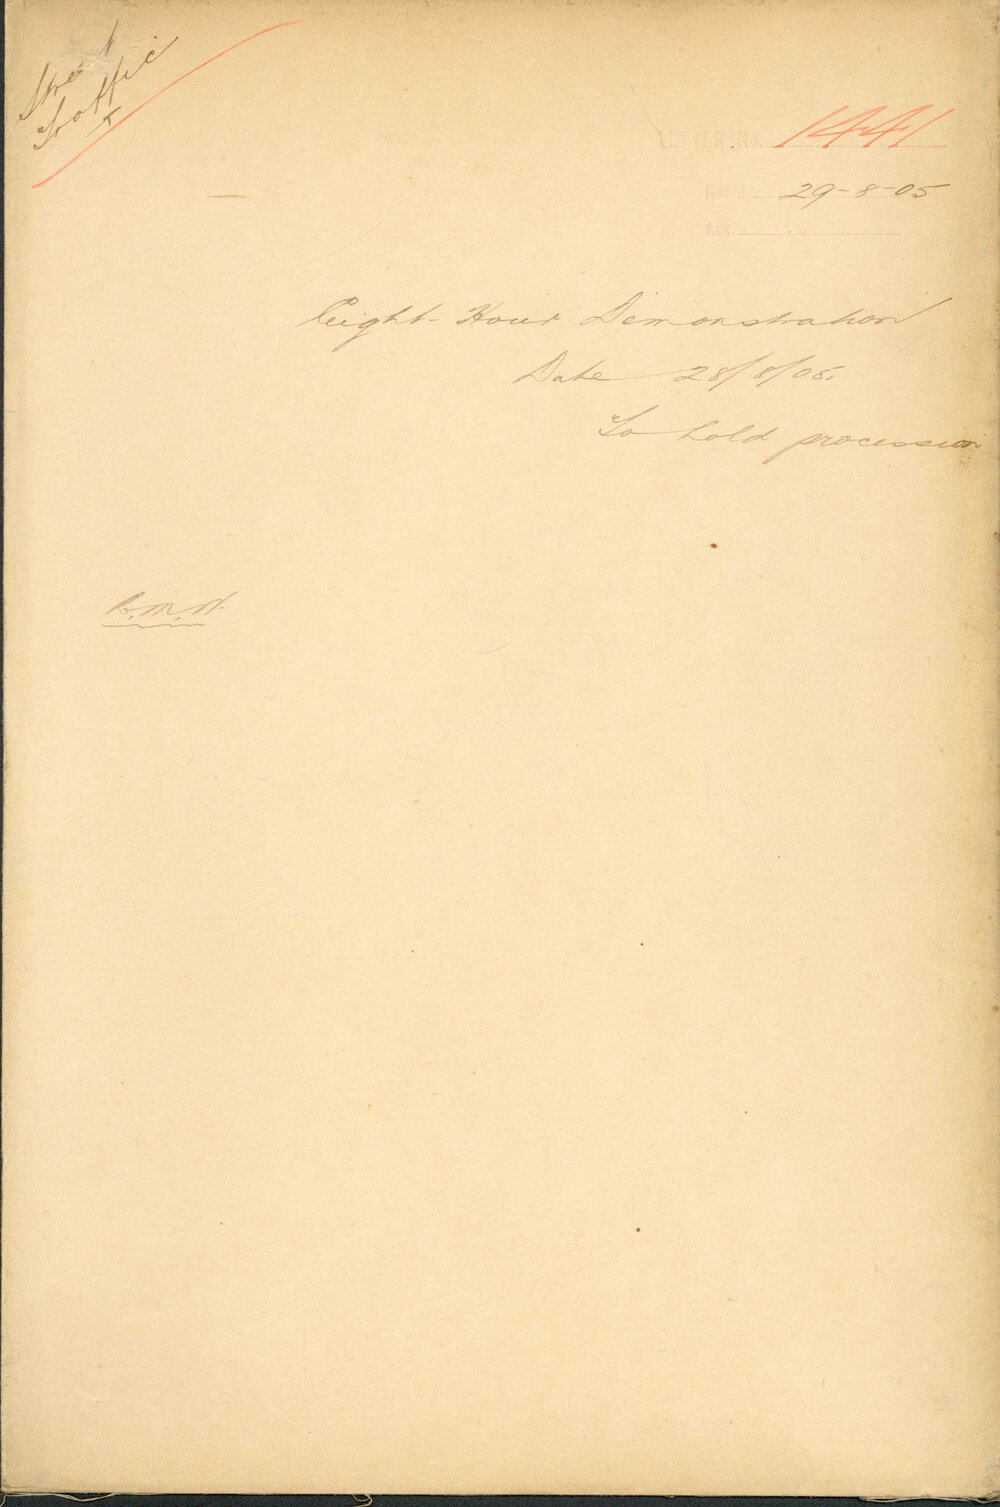 Street
Traffic
LETTER No. 1441
Recd. 29-8-05
Ack.
Eight-Hour Demonstration
Date 28/8/05.
To hold procession